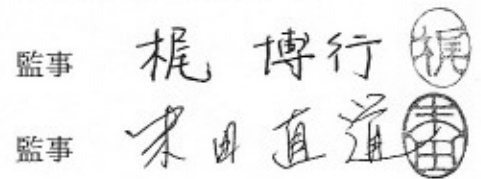 監事 梶 博行 梶
監事 末田直道